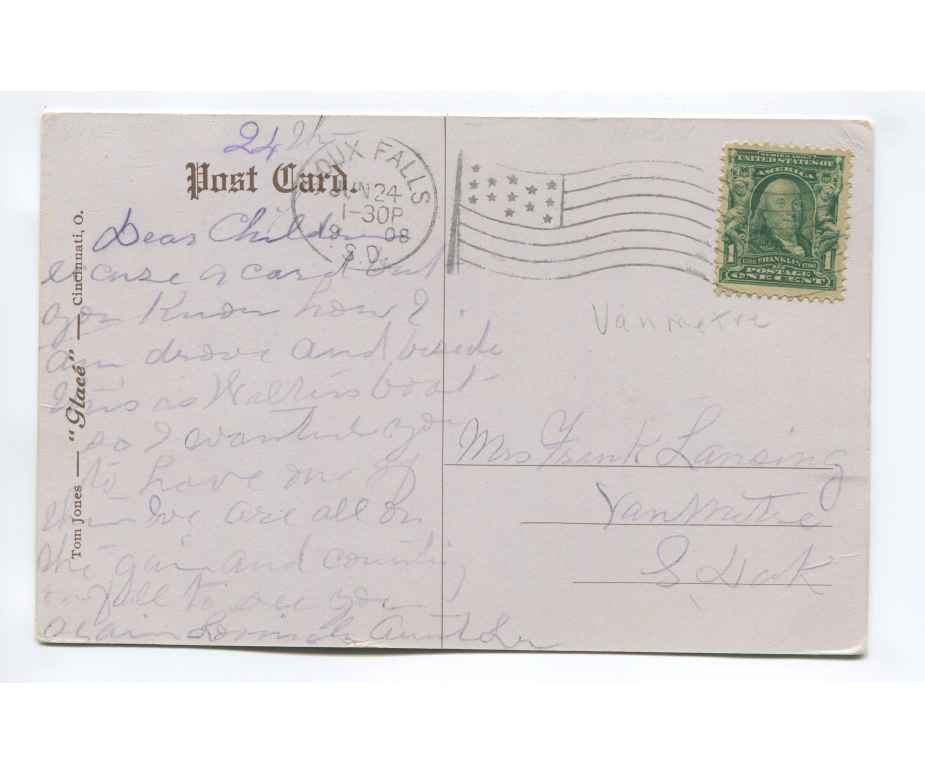 24th
Post Card.
SIOUX FALLS
JUN 24
1-30P
19 08
S.D.
SERIES 1902
UNITED STATES OF
AMERICA
1 FRANKLIN 1
POSTAGE
ONE CENT
Tom Jones — "Glacé" — Cincinnati, O.
Dear Children
excuse a card but
you Know how I
am drove and beside
this is boat
so I wanted you
to have one of
them We are all on
the gain and counting
on fall to see you
again Aunt
Vanmetre
Mrs Frank Lansing
VanMetre
S Dak